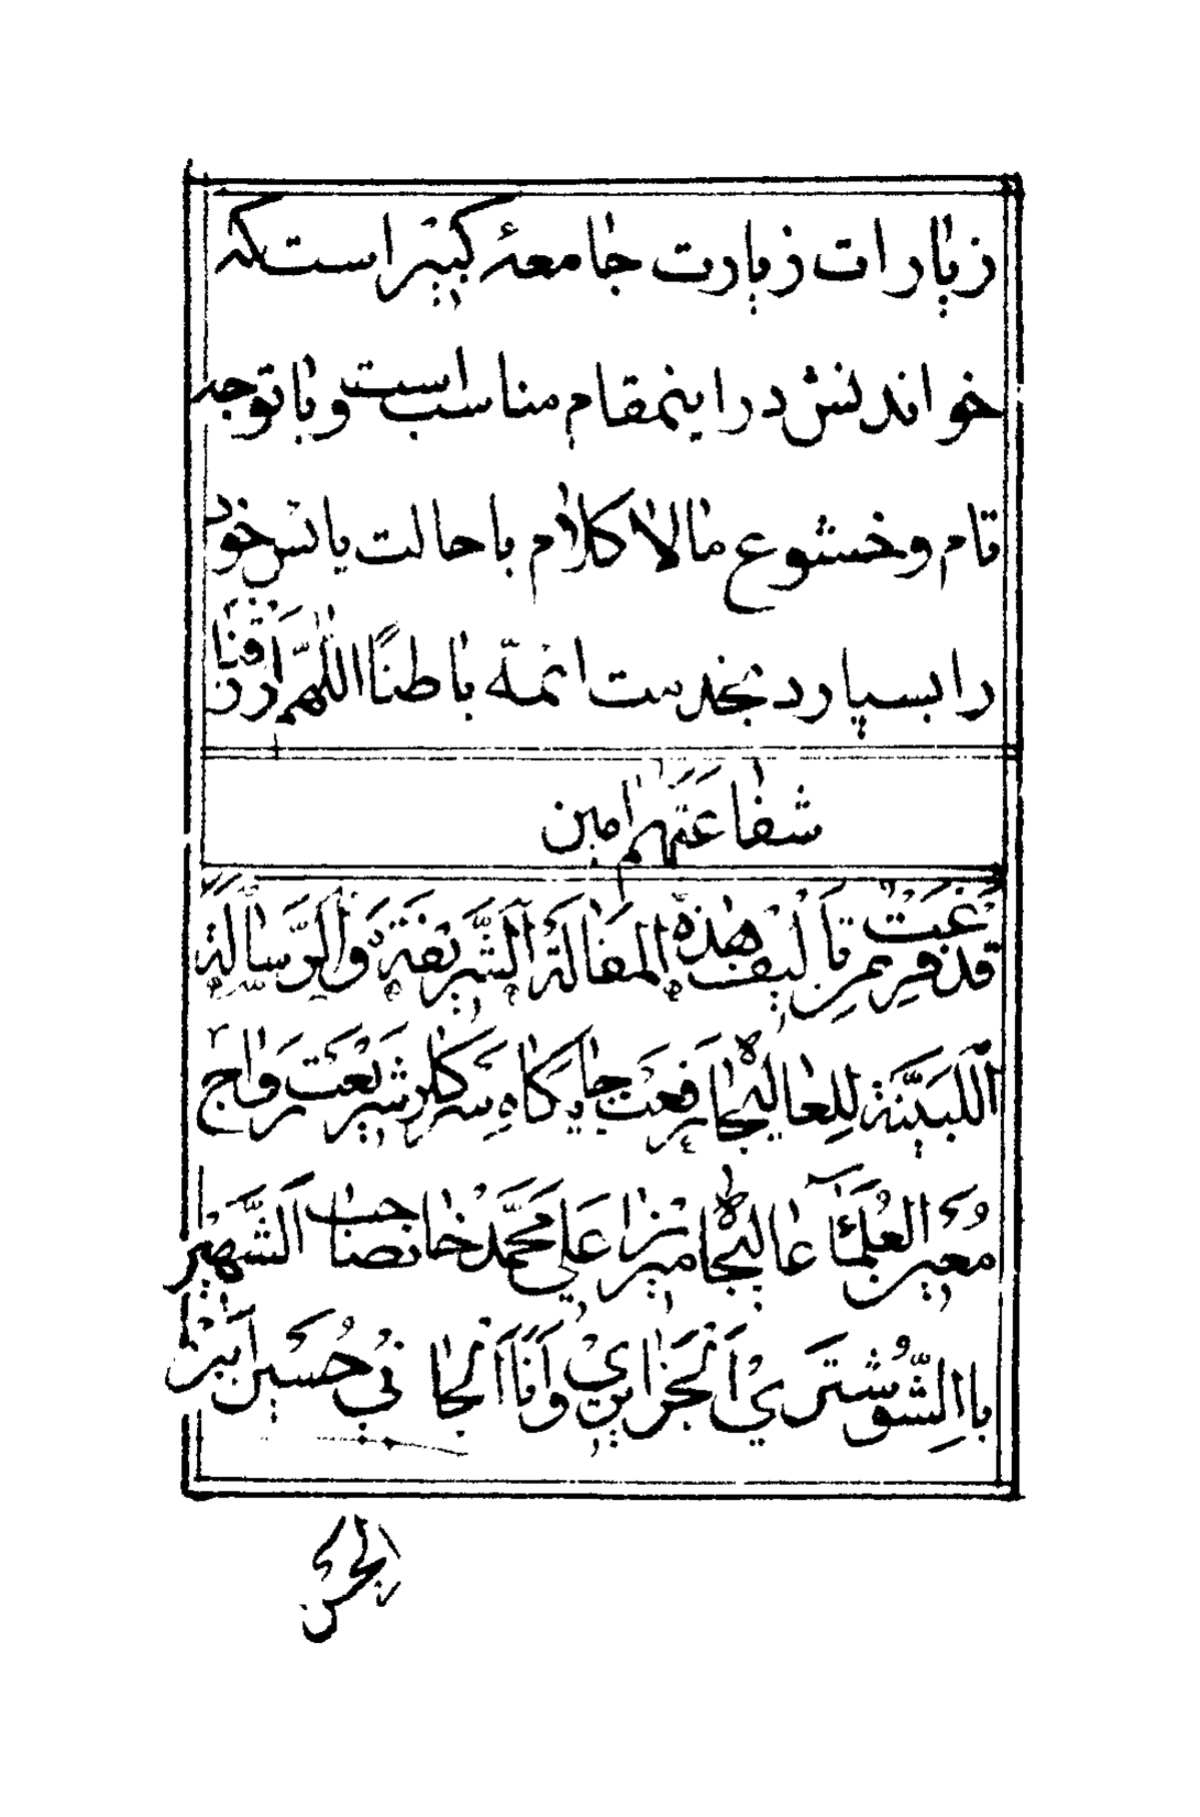 زیارات زیارت جامعهٔ کبیر است که
خواندنش در اینمقام مناسب است و با توجه
تام و خشوع مالا کلام با حالت یاس خود
را بسپارد بخدمت ائمّه باطنًا اللّهمّ ارزقنا
شفاعتهم امین
قد فرغت من تألیف هذه المقالة الشّریفة والرّسالة
اللبیّنة للعالیجاه رفعت جایگاه سرکار شریعت رواج
معین العلمآء عالیجاه میرزا علی محمّد خانصاحب الشّهیر
باالشّوشتری الجزایری وانا الجانی حسین ابن
الحسن